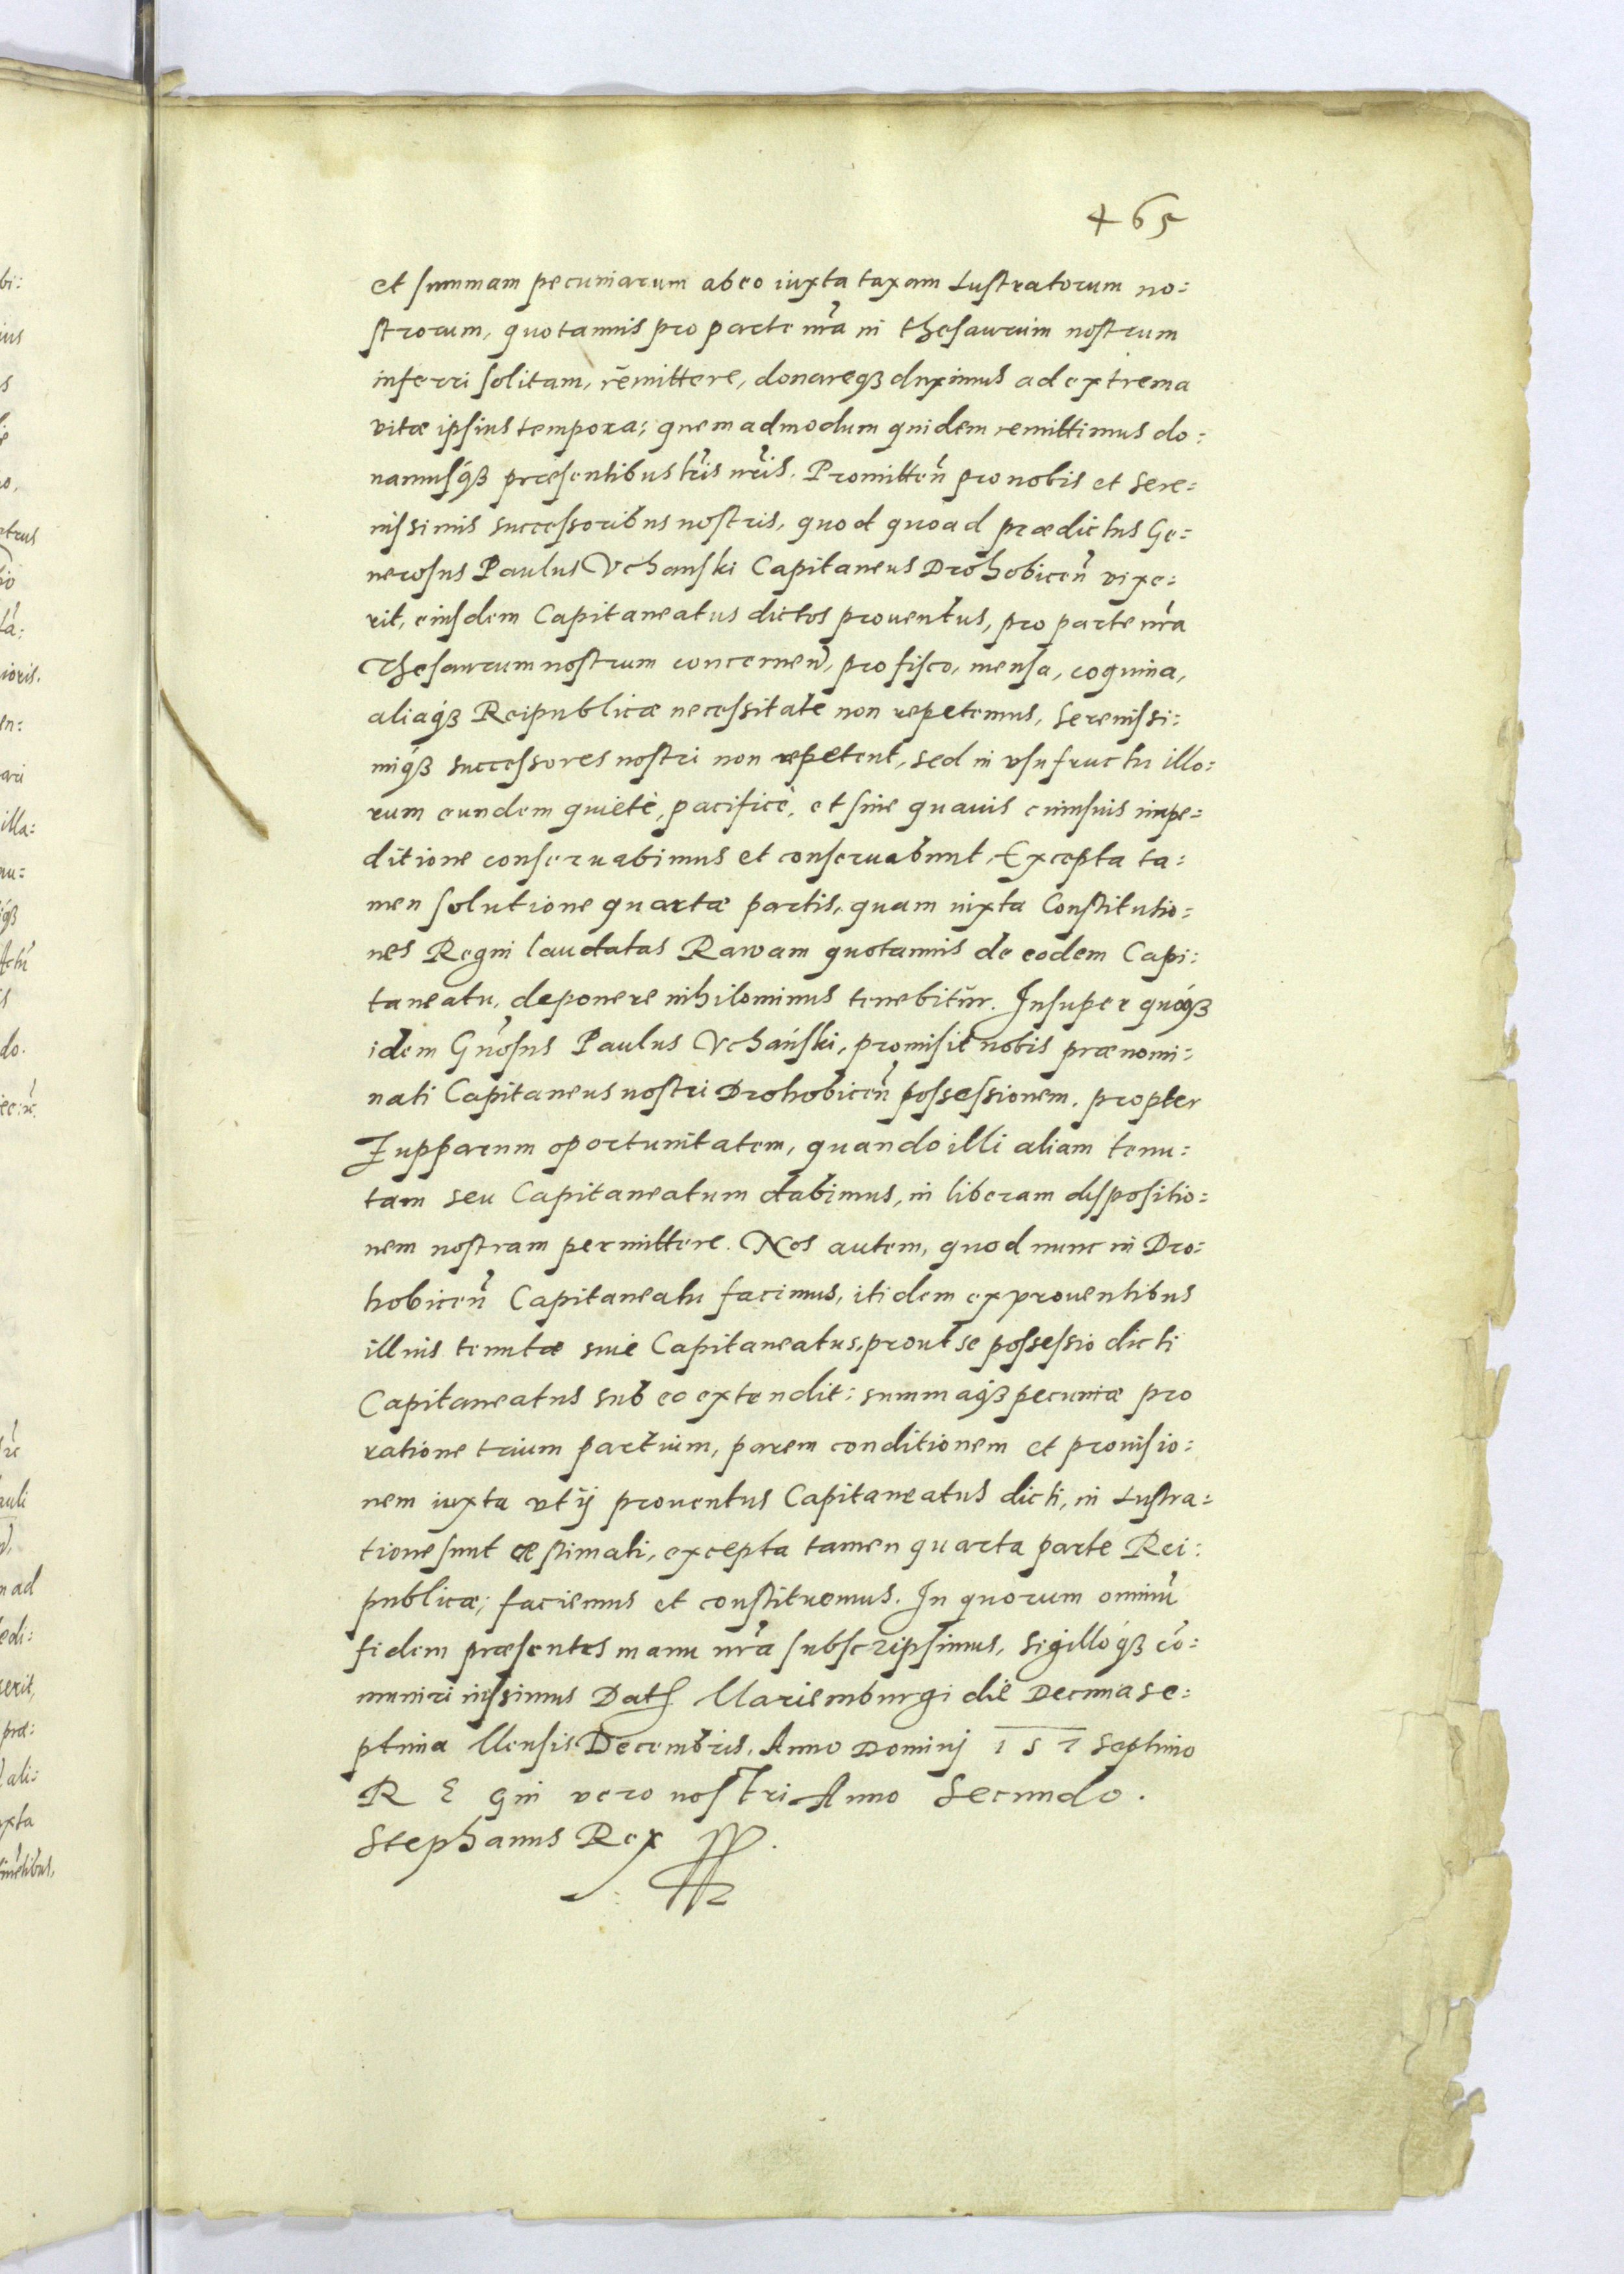 465
et summam pecuniarum ab eo iuxta taxam Lustratorum no:
strorum, quotannis pro parte nr̃a in thesaurum nostrum
inferri solitam, remittere, donareqȝ duximus ad extrema
vitæ ipsius tempora; quemadmodum quidem remittimus do:
namusqȝ præsentibus lr̃is nr̃is. Promitteñ pro nobis et Sere:
nissimis successoribus nostris, quod quoad prædictus Ge:
nerosus Paulus Vchanski Capitaneus Drohobiceñ vixe:
rit, eiusdem Capitaneatus dictos prouentus, pro parte nr̃a
Thesaurum nostrum concerneñ, pro fisco, mensa, coquina,
aliaqȝ Reipublicæ necessitate non repetemus, Serenissi:
miqȝ successores nostri non repetent, sed in vsufructu illo:
rum eundem quietè, pacificè, et sine quauis cuiusuis impe:
ditione conseruabimus et conseruabunt, Excepta ta:
men solutione quartæ partis, quam iuxta Constitutio:
nes Regni laudatas Rawam quotannis de eodem Capi:
taneatu, deponere nihilominus tenebitur. Insuper quoqȝ
idem Gñosus Paulus Vchański, promisit nobis prænomi:
nati Capitaneus nostri Drohobiceñ possessionem, propter
Zupparum oportunitatem, quando illi aliam tenu:
tam seu Capitaneatum dabimus, in liberam dispositio:
nem nostram permittere. Nos autem, quod nunc in Dro:
hobiceñ Capitaneatu facimus, itidem ex prouentibus
illius tenutæ siue Capitaneatus, prout se possessio dicti
Capitaneatus sub eo extendit: summaqȝ pecuniæ pro
ratione trium partium, parem conditionem et prouisio:
nem iuxta vt ij prouentus Capitaneatus dicti, in Lustra:
tione sunt æstimati, excepta tamen quarta parte Rei:
publicæ; faciemus et constituemus. In quorum omniũ
fidem præsentes manu nr̃a subscripsimus, sigilloqȝ cõ:
muniri iussimus Dat Mariemburgi die Decima se:
ptima Mensis Decembris, Anno Dominj 157 septimo
REgni vero nostri Anno Secundo.
Stephanus Rex